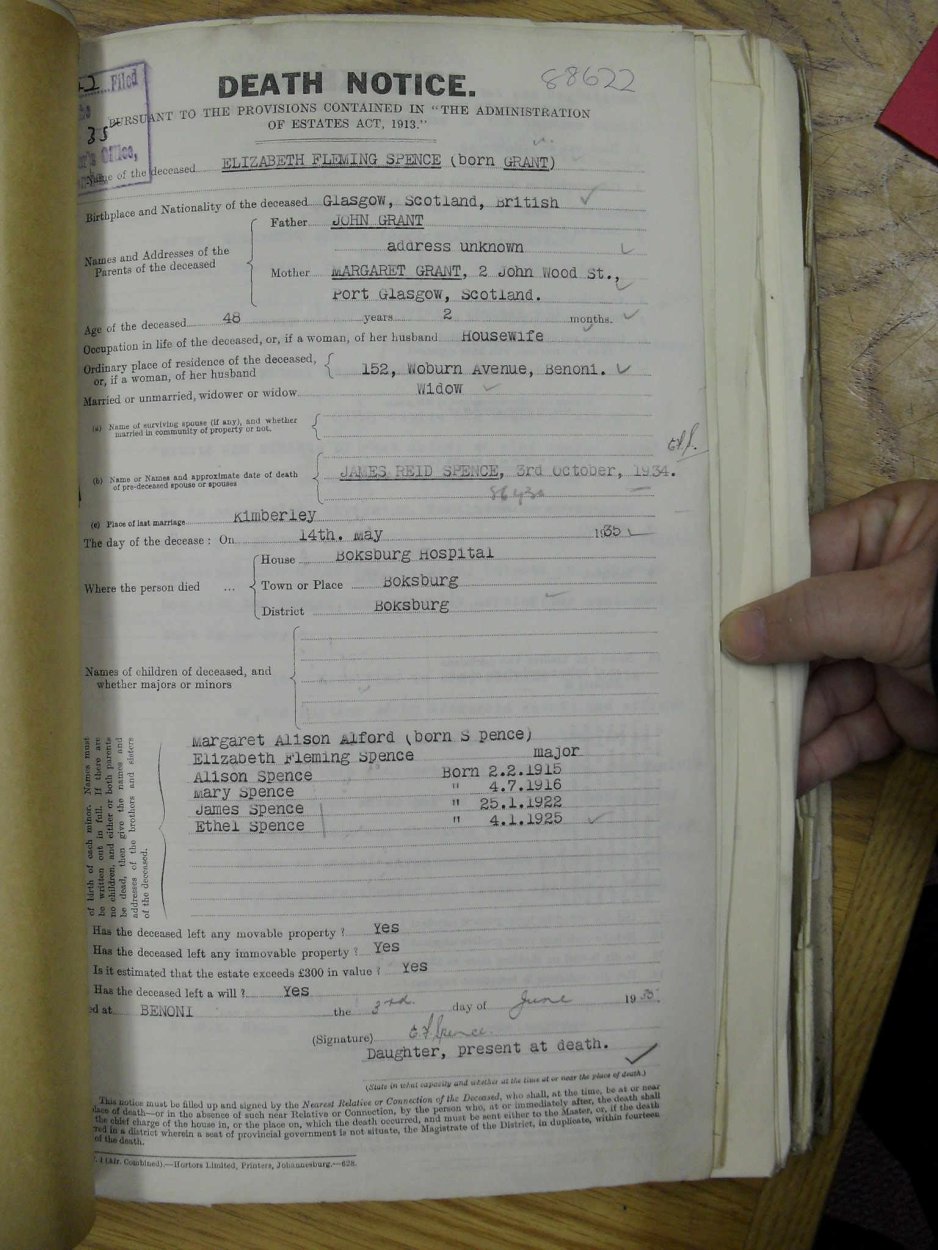 Filed
35
Office,
DEATH NOTICE.
88622
PURSUANT TO THE PROVISIONS CONTAINED IN "THE ADMINISTRATION
OF ESTATES ACT, 1913."
Name of the deceased ELIZABETH FLEMING SPENCE (born GRANT)
Birthplace and Nationality of the deceased Glasgow, Scotland, British
Names and Addresses of the
Parents of the deceased
Father JOHN GRANT
address unknown
Mother MARGARET GRANT, 2 John Wood St.,
Port Glasgow, Scotland.
Age of the deceased 48 years 2 months.
Occupation in life of the deceased, or, if a woman, of her husband Housewife
Ordinary place of residence of the deceased,
or, if a woman, of her husband
152, Woburn Avenue, Benoni.
Married or unmarried, widower or widow Widow
(a) Name of surviving spouse (if any), and whether
married in community of property or not.
(b) Name or Names and approximate date of death
of pre-deceased spouse or spouses
JAMES REID SPENCE, 3rd October, 1934.
(c) Place of last marriage Kimberley
The day of the decease: On 14th. May 1935
Where the person died ...
House Boksburg Hospital
Town or Place Boksburg
District Boksburg
Names of children of deceased, and
whether majors or minors
of birth of each minor. Names must
be written out in full. If there are
no children, and either or both parents
be dead, then give the names and
addresses of the brothers and sisters
of the deceased.
Margaret Alison Alford (born S pence)
Elizabeth Fleming Spence " major
Alison Spence Born 2.2.1915
Mary Spence " 4.7.1916
James Spence " 25.1.1922
Ethel Spence " 4.1.1925
Has the deceased left any movable property? Yes
Has the deceased left any immovable property? Yes
Is it estimated that the estate exceeds £300 in value? Yes
Has the deceased left a will? Yes
ed at BENONI the 3rd. day of June 1935.
(Signature) E F Spence
Daughter, present at death.
(State in what capacity and whether at the time at or near the place of death.)
This notice must be filled up and signed by the Nearest Relative or Connection of the Deceased, who shall, at the time, be at or near
place of death—or in the absence of such near Relative or Connection, by the person who, at or immediately after, the death shall
the chief charge of the house in, or the place on, which the death occurred, and must be sent either to the Master, or, if the death
red in a district wherein a seat of provincial government is not situate, the Magistrate of the District, in duplicate, within fourteen
of the death.
1 (Afr. Combined).—Hortors Limited, Printers, Johannesburg.—628.